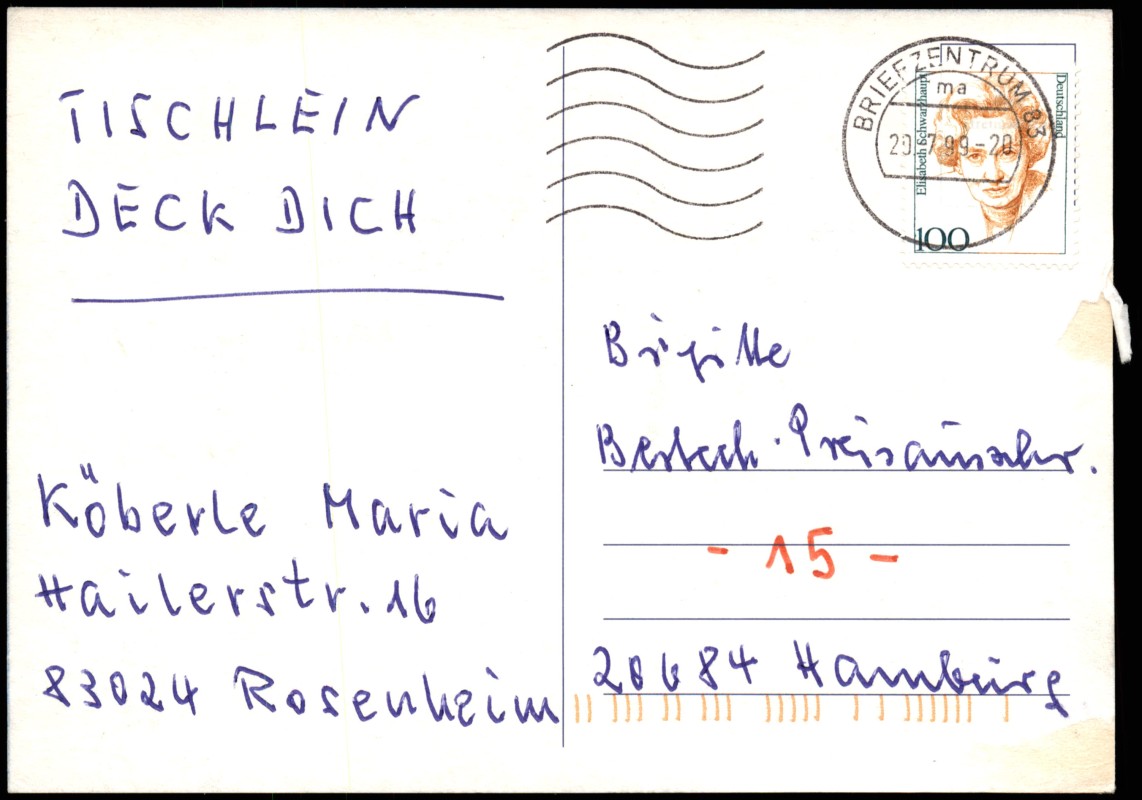 TISCHLEIN
DECK DICH
Köberle Maria
Hailerstr. 16
83024 Rosenheim
BRIEFZENTRUM 83
ma
20.7.99-20
Deutschland
Elisabeth Schwarzhaupt
100
Brigitte
Besteck-Preisausschr.
- 15 -
20684 Hamburg